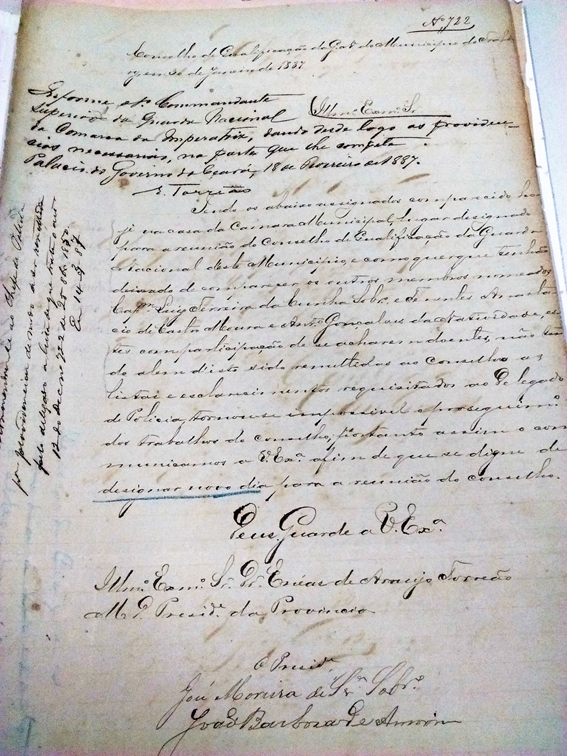 Nº 722
Conselho de Qualificação da Gda. do Municipio de
em de Janeiro de 1887
Informe o Sr. Commandante
Superior da Guarda Nacional
da Comarca da Imperatriz, dando desde logo as providen-
cias necessarias, na parte que lhe compete.
Palacio do Governo do Ceará, 18 de Fevereiro de 1887.
E. Torreão
Illmo. Exmo. Sr.
Tendo os abaixo assignados comparecido ho
je na casa da Camara Municipal, lugar designado
para a reunião do Conselho de Qualificação da Guarda
Nacional deste Municipio, e como quer que tenhão
deixado de comparecer os outros membros nomeados
Capm. Luiz Ferreira da Cunha Sobro. e Tenentes
de Castro Moura e Anto. Gonçalves da Natividade, es-
tes com participação de se acharem doentes, não ten
do alem disto sido remettidos ao conselho as
listas e esclarecimentos requisitados ao Delegado
de Policia, tornou-se impossivel o proseguimto.
dos trabalhos do conselho; portanto assim o com
municamos a V. Exa. afim de que se digne de
designar novo dia para a reunião do conselho.
Deus Guarde a V. Exa.
Illmo. Exmo. Sr. Dr. Enéas de Araujo Torreão
M. D. Preside. da Provincia.
O Preside.
José Moreira de Sobro.
João Barbosa de Amorim